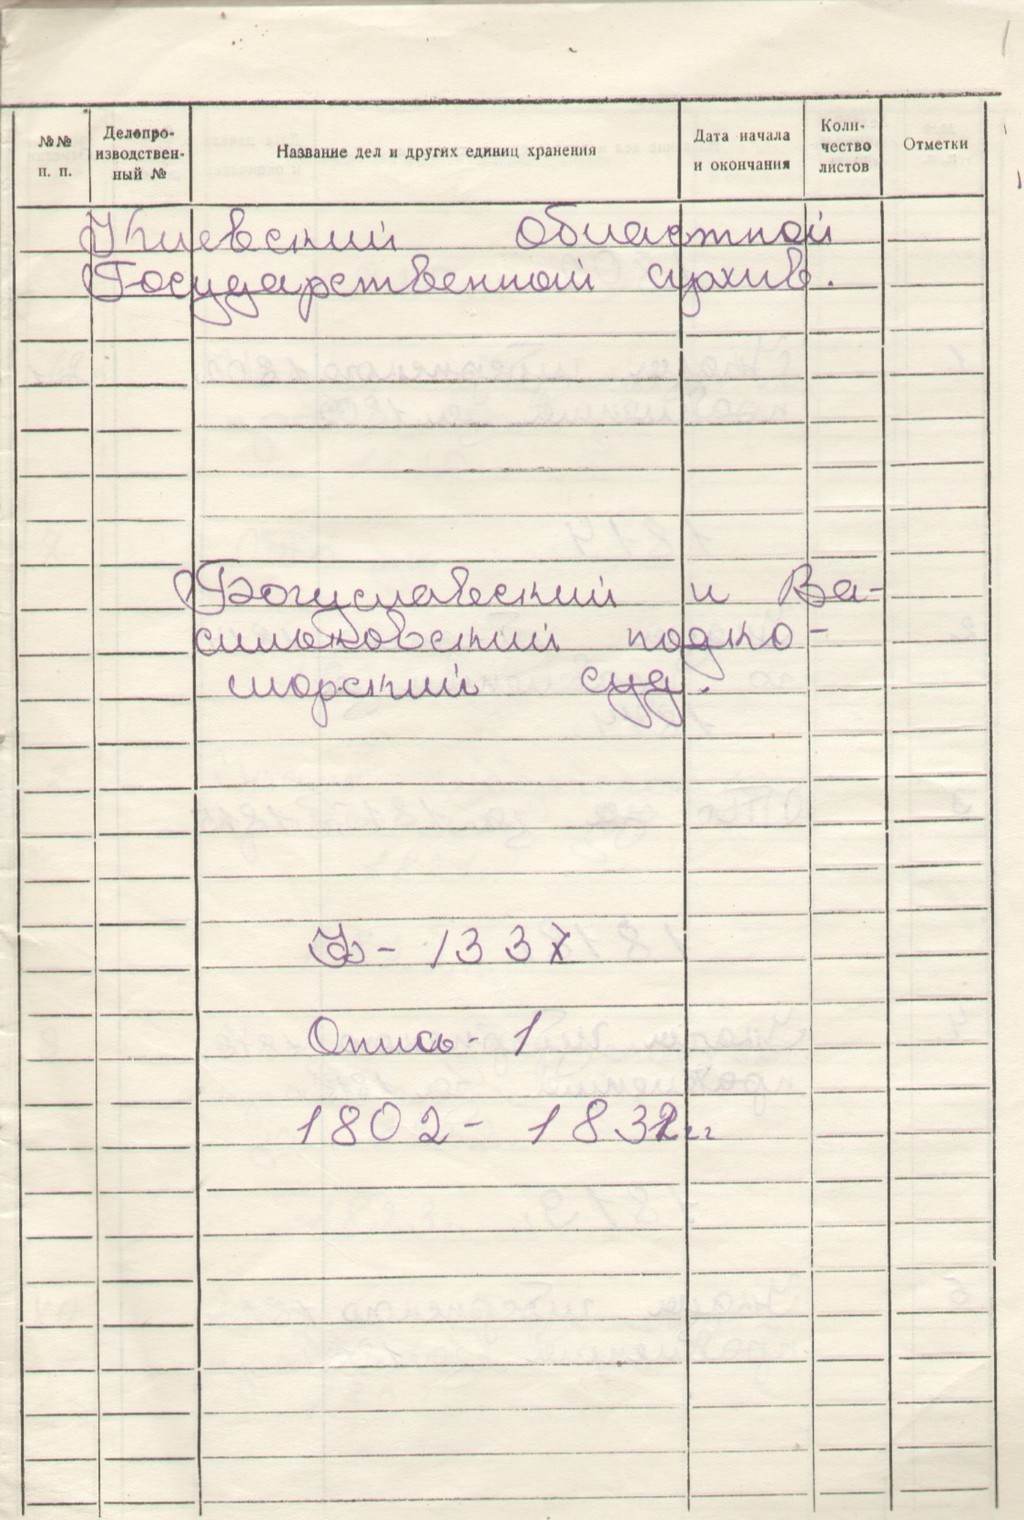 №№ п. п.
Делопро-
изводствен-
ный №
Название дел и других единиц хранения
Дата начала
и окончания
Коли-
чество
листов
Отметки
Киевский Областной
Государственный архив.
Богуславский и Ва-
сильковский подко-
морский суд.
Ф - 1337
Опись - 1
1802 - 1832 гг